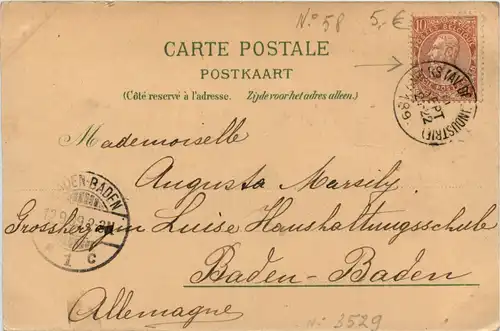 N° 58 5,€
10
CARTE POSTALE
POSTKAART
(Côté reservé à l'adresse. Zijde voor het adres alleen.)
Mademoiselle
Augusta Marsily
Grossherzogium Luise Haushaltungsschule
Baden-Baden
Allemagne
N° 3529
BADEN-BADEN
1 C
ANVERS (AV. DE L'INDUSTRIE)
SEPT